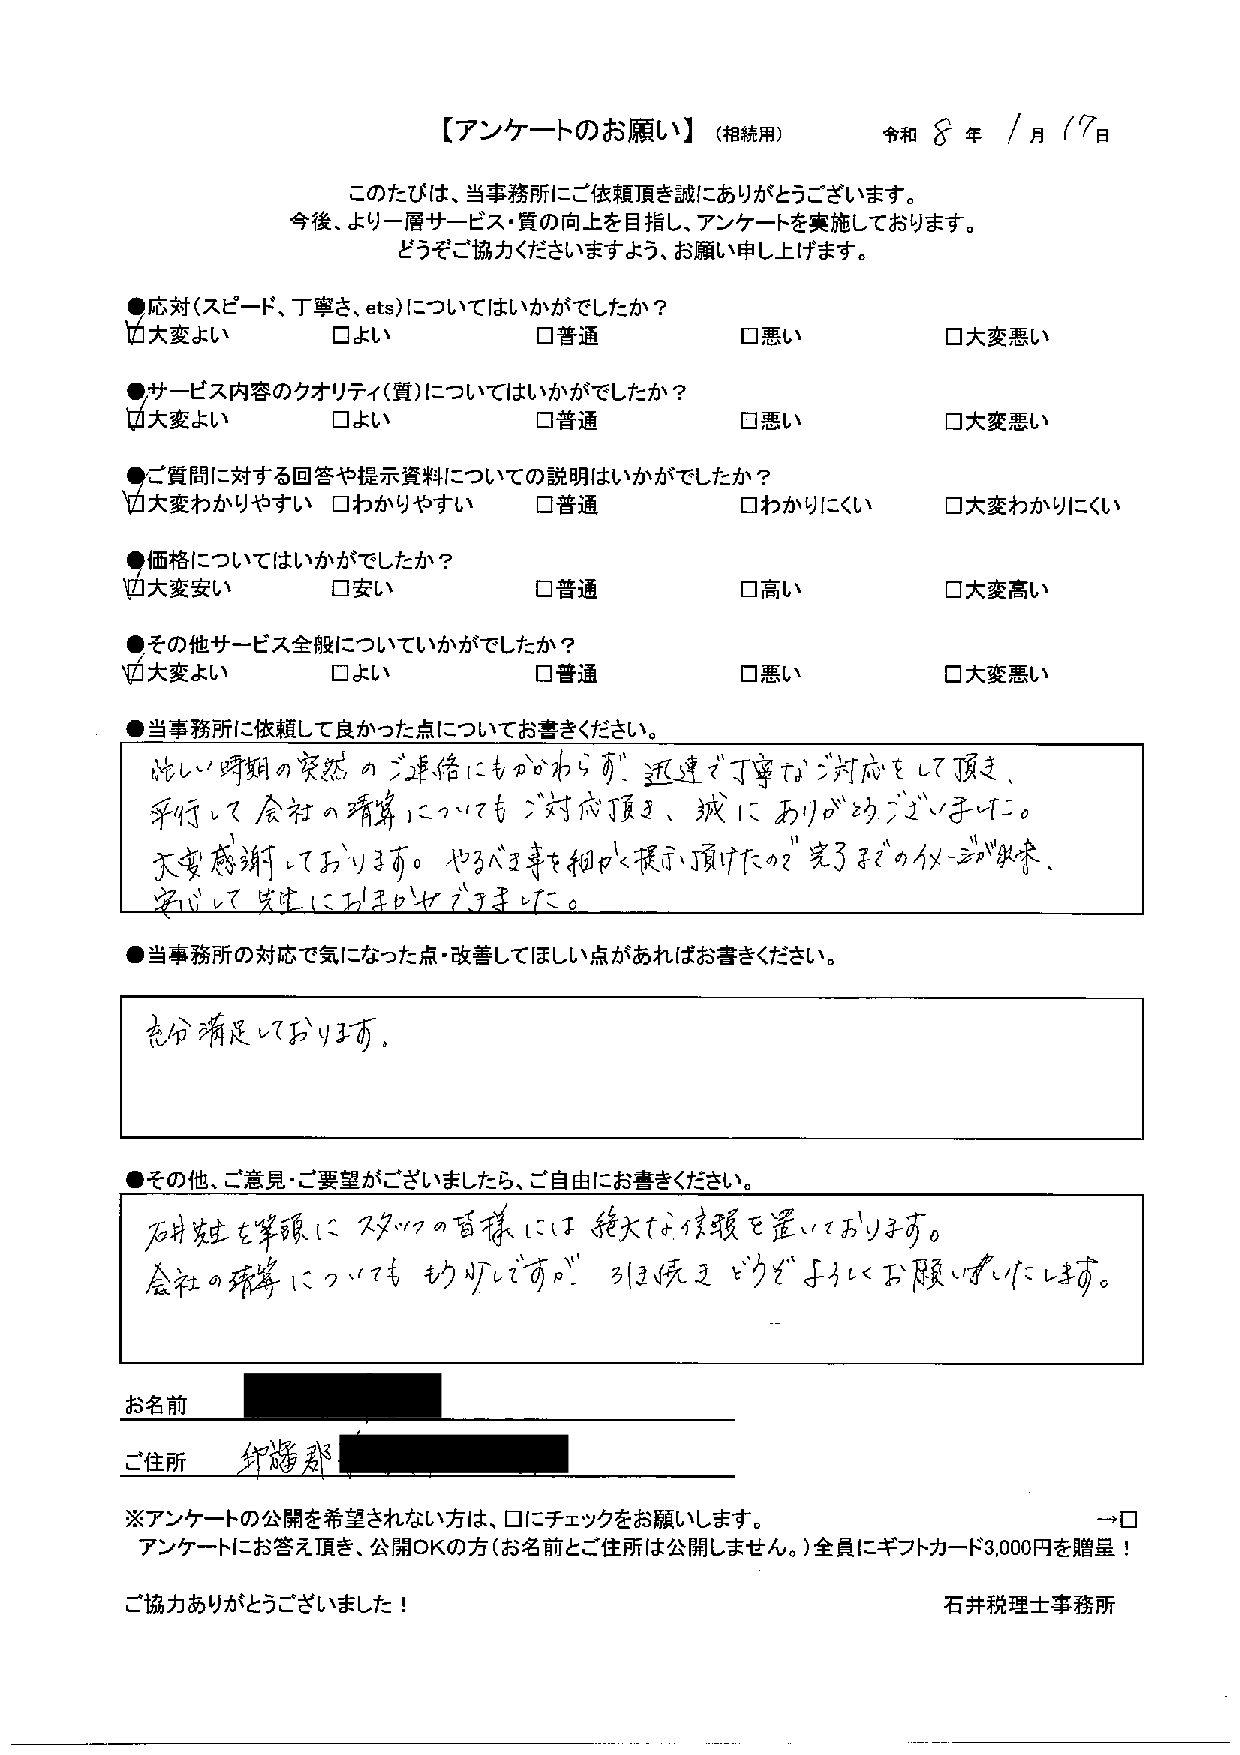 【アンケートのお願い】 （相続用） 令和 8 年 1 月 17 日
このたびは、当事務所にご依頼頂き誠にありがとうございます。
今後、より一層サービス・質の向上を目指し、アンケートを実施しております。
どうぞご協力くださいますよう、お願い申し上げます。
●応対（スピード、丁寧さ、ets）についてはいかがでしたか？
☑大変よい □よい □普通 □悪い □大変悪い
●サービス内容のクオリティ（質）についてはいかがでしたか？
☑大変よい □よい □普通 □悪い □大変悪い
●ご質問に対する回答や提示資料についての説明はいかがでしたか？
☑大変わかりやすい □わかりやすい □普通 □わかりにくい □大変わかりにくい
●価格についてはいかがでしたか？
☑大変安い □安い □普通 □高い □大変高い
●その他サービス全般についていかがでしたか？
☑大変よい □よい □普通 □悪い □大変悪い
●当事務所に依頼して良かった点についてお書きください。
忙しい時期の突然のご連絡にもかかわらず、迅速で丁寧なご対応をして頂き、
平行して会社の清算についてもご対応頂き、誠にありがとうございました。
大変感謝しております。やるべき事を細かく提示頂けたので完了までのイメージが出来、
安心して先生におまかせできました。
●当事務所の対応で気になった点・改善してほしい点があればお書きください。
充分満足しております。
●その他、ご意見・ご要望がございましたら、ご自由にお書きください。
石井先生を筆頭にスタッフの皆様には絶大な信頼を置いております。
会社の清算についてももう少しですが、引き続きどうぞよろしくお願いいたします。
お名前
ご住所 印旛郡
※アンケートの公開を希望されない方は、□にチェックをお願いします。 →□
アンケートにお答え頂き、公開OKの方（お名前とご住所は公開しません。）全員にギフトカード3,000円を贈呈！
ご協力ありがとうございました！ 石井税理士事務所